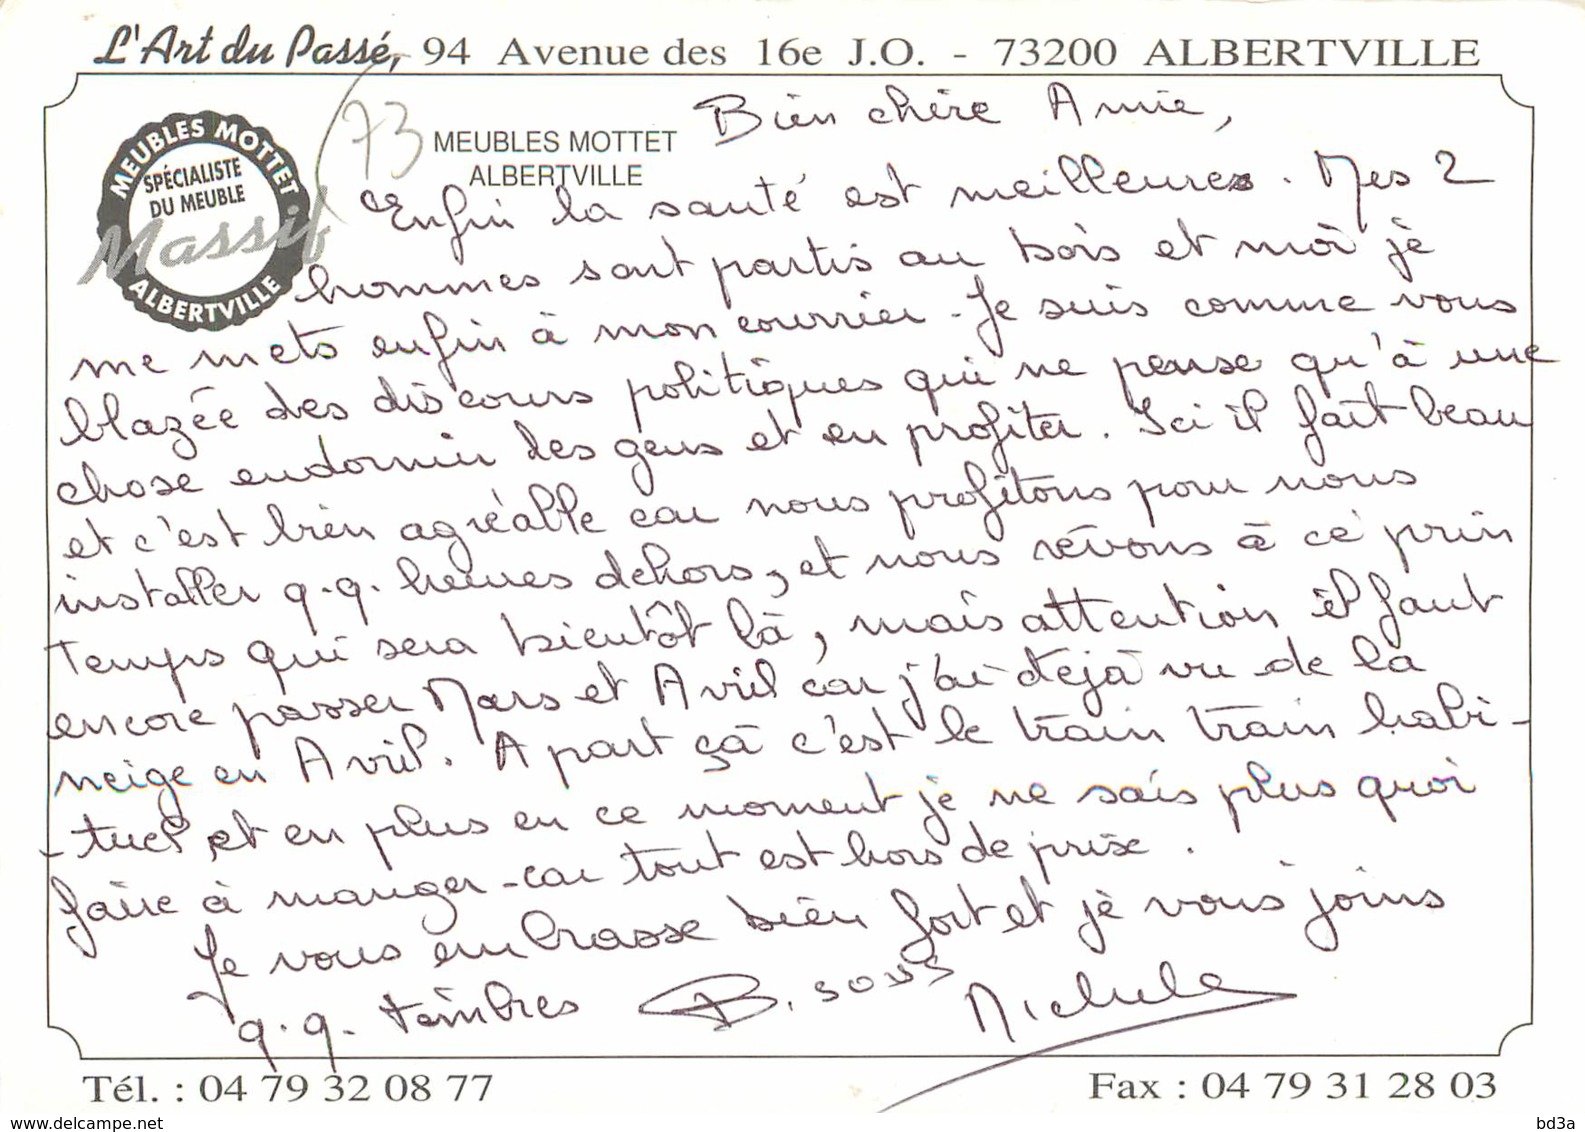 L'Art du Passé, 94 Avenue des 16e J.O. - 73200 ALBERTVILLE
73
MEUBLES MOTTET
SPÉCIALISTE
DU MEUBLE
Massif
ALBERTVILLE
MEUBLES MOTTET
ALBERTVILLE
Bien chère Amie,
Enfin la santé est meilleure. Mes 2
hommes sont partis au bois et moi je
me mets enfin à mon courrier - Je suis comme vous
blazée des discours politiques qui ne pense qu'à une
chose endormir les gens et en profiter. Ici il fait beau
et c'est bien agréable car nous profitons pour nous
installer q.q. heures dehors, et nous rêvons à ce prin
temps qui sera bientôt là, mais attention il faut
encore passer Mars et Avril car j'ai déjà vu de la
neige en Avril. A part ça c'est le train train habi-
-tuel et en plus en ce moment je ne sais plus quoi
faire à manger - car tout est hors de prix.
Je vous embrasse bien fort et je vous joins
q.q. timbres B. sous Michele
Tél. : 04 79 32 08 77
Fax : 04 79 31 28 03
www.delcampe.net
bd3a